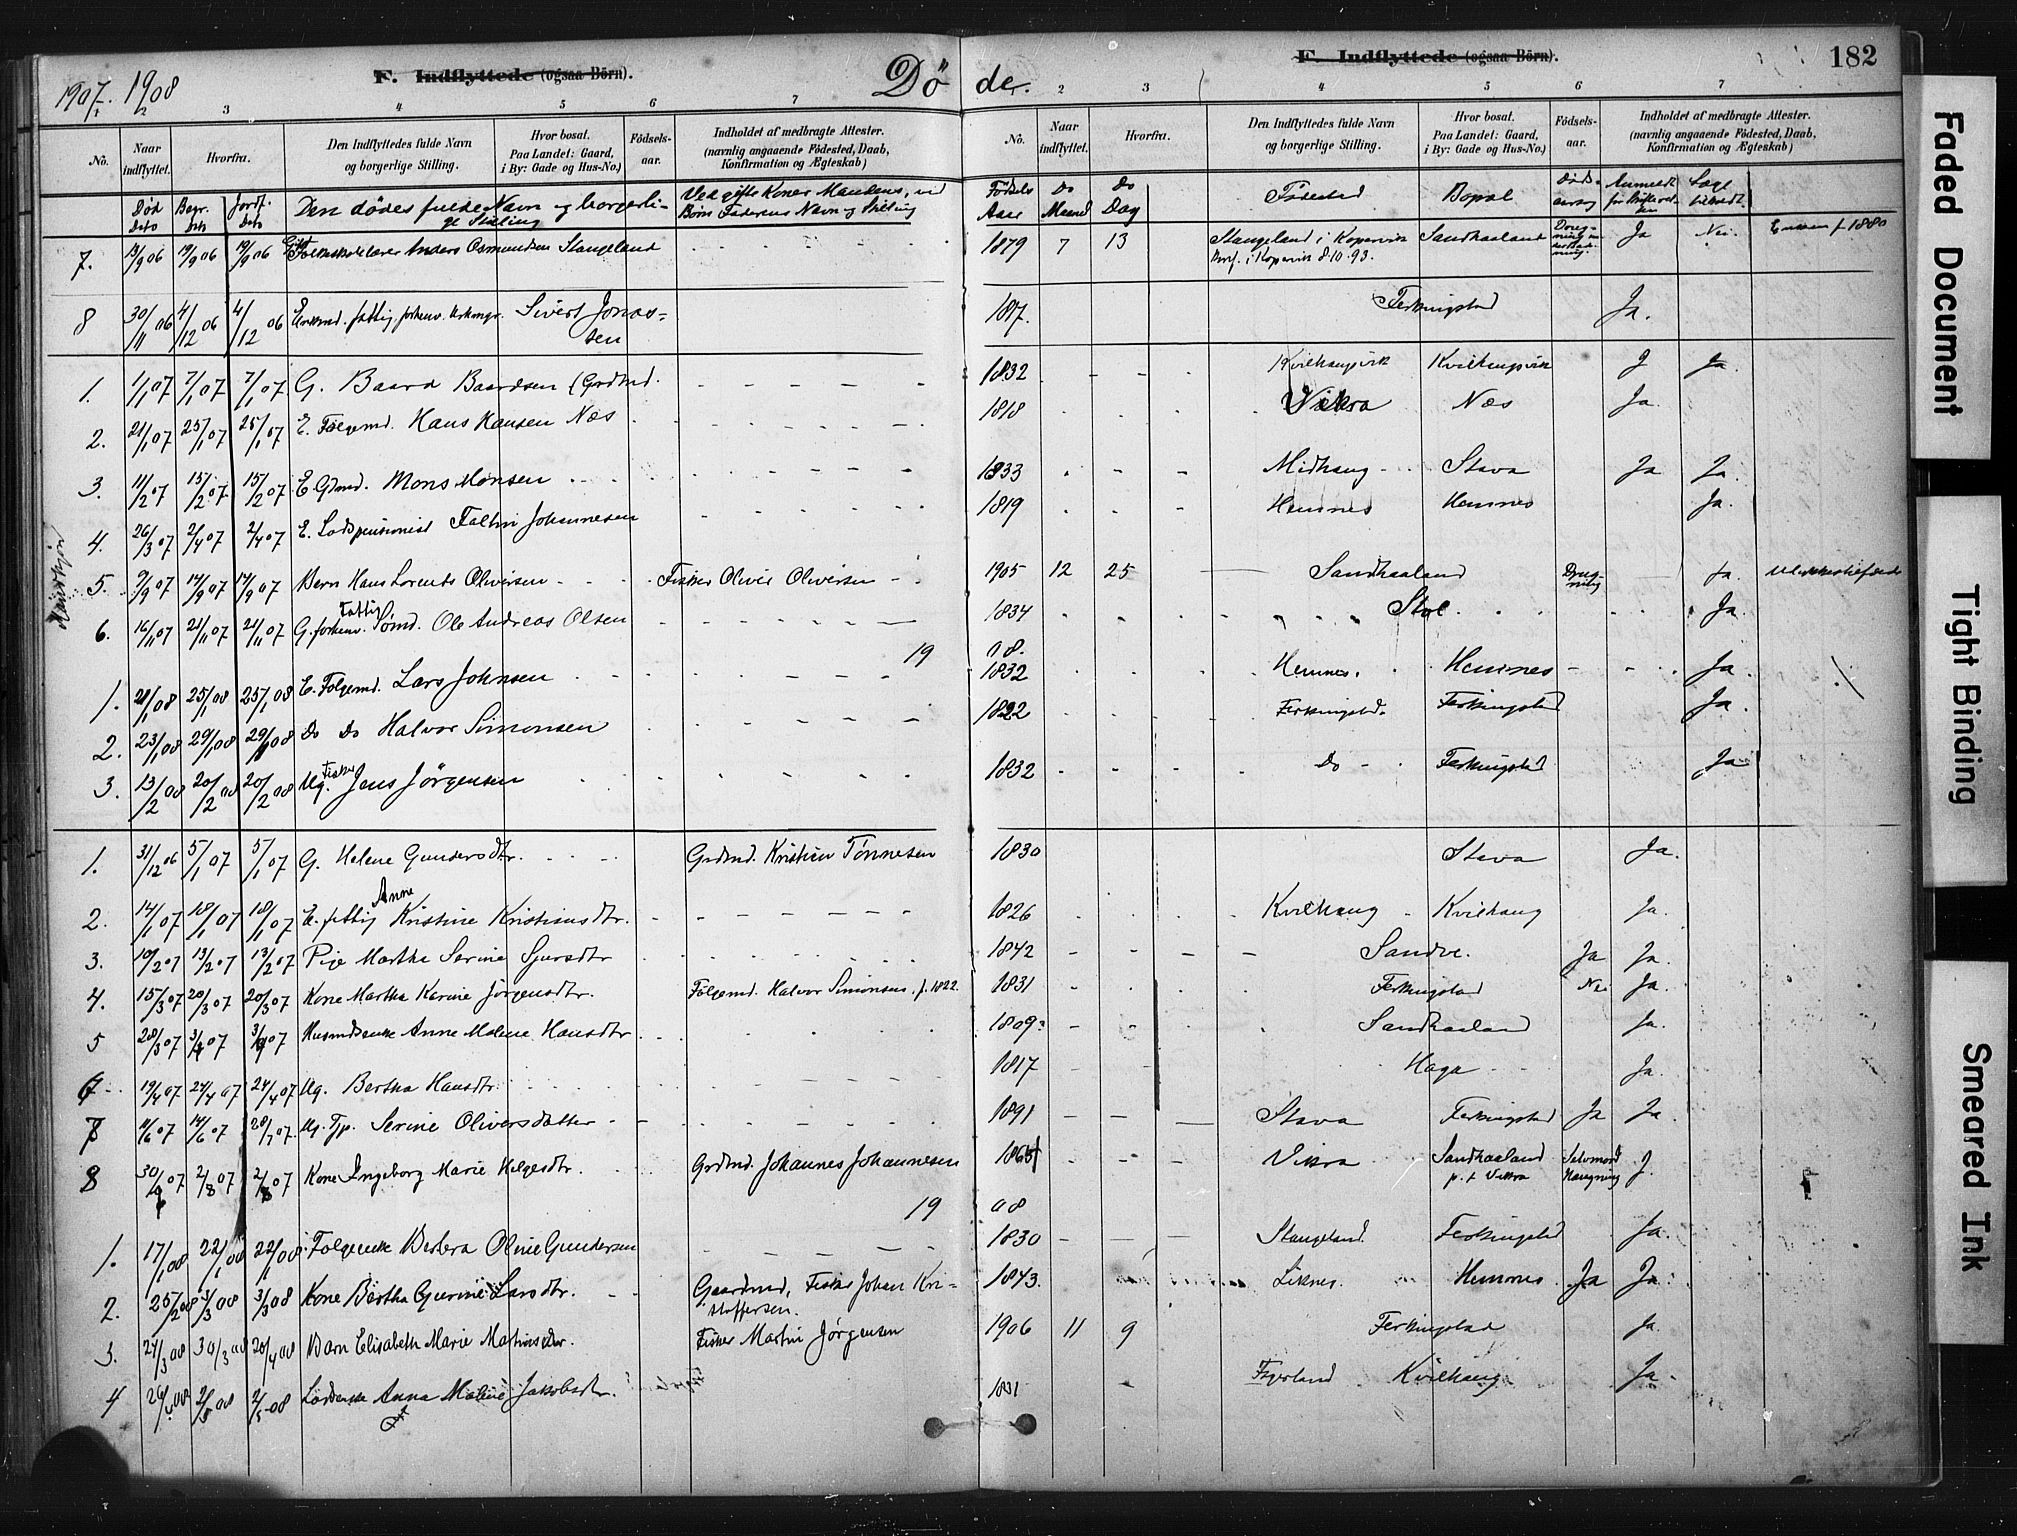 1907. 1908
F. Indflyttede (ogsaa Börn).
Dö
de.
F. Indflyttede (ogsaa Börn).
182
3 4 5 6 7
2 3 4 5 6 7
No. Naar indflyttet. Hvorfra. Den Indflyttedes fulde Navn og borgerlige Stilling. Hvor bosat. Paa Landet: Gaard, i By: Gade og Hus-No.) Födsels-aar. Indholdet af medbragte Attester. (navnlig angaaende Födested, Daab, Konfirmation og Ægteskab)
No. Naar indflyttet. Hvorfra. Den Indflyttedes fulde Navn og borgerlige Stilling. Hvor bosat. Paa Landet: Gaard, i By: Gade og Hus-No.) Födsels-aar. Indholdet af medbragte Attester. (navnlig angaaende Födested, Daab, Konfirmation og Ægteskab)
Död Dato Begr. Dato Jordf. Dato Den dödes fulde Navn og borgerlige Stilling Ved gifte Koner Mandens, ved Börn Faderens Navn og Stilling Födsels Aar Do Maaned Do Dag Födested Bopæl Döds-aarsag Anmeldt for Skifteretten Læge tilkaldt
7. 13/9 06 19/9 06 19/9 06 Folkeskolelærer Anders Osmundsen Stangeland 1879 7 13 Stangeland i Kopervik Sandhaaland Ja Nei Enken f. 1880
Konf. i Kopervik 8.10.93.
8 30/11 06 4/12 06 4/12 06 Enkemd. fattig, forhenv. Sivert Jonassen Ferkingstad Ja.
1. 1/1 07 7/1 07 7/1 07 G. Baard Baardsen (Grdmd. 1832 Kvilhaugsvik Kvilhaugsvik J Ja
2. 21/1 07 25/1 07 25/1 07 E. Folgemd. Hans Hansen Næs 1818 Vikra Næs Ja.
3. 11/2 07 15/2 07 15/2 07 E. Grdmd. Mons Monsen 1833 Midhaug Stava Ja Ja.
4. 26/3 07 2/4 07 2/4 07 E. Lodspensionist Faltin Johannesen 1819 Hemnes Hemnes Ja.
5. 9/9 07 14/9 07 14/9 07 Barn Hans Lorents Oliversen Fisker Oliver Oliversen 1905 12 25 Sandhaaland Drugning Ja.
6. 16/11 07 21/11 07 21/11 07 G. forhenv. fattig Sømd. Ole Andreas Olsen 1834 Stol Ja.
19 08.
1. 21/1 08 25/1 08 25/1 08 E. Folgemd. Lars Johnsen 1832 Hemnes. Hemnes Ja.
2. 23/1 08 29/1 08 29/1 08 Do Do Halvor Simonsen 1822 Ferkingstd. Ferkingstad Ja.
3. 13/2 08 20/2 08 20/2 08 Ug. Fisker Jens Jörgensen 1832 Do Ferkingstad Ja
1. 31/12 06 5/1 07 5/1 07 G. Helene Gundersdtr. Grdmd. Kristian Tönnesen 1830 Stava Ja.
2. 14/1 07 18/1 07 18/1 07 E. fattig Anne Kristine Kristiansdtr. 1826 Kvilhaug Kvilhaug Ja.
3. 10/2 07 13/2 07 13/2 07 Pige Martha Serine Sjursdtr 1842 Sandve. Ja Ja.
4. 15/3 07 20/3 07 20/3 07 Kone Martha Karine Jörgensdtr. Folgemd. Halvor Simonsen f. 1822. 1831 Ferkingstad Nei Ja.
5 28/3 07 3/4 07 3/4 07 Husmdsenke Anne Malene Hansdtr 1809. Sandhaaland Ja.
6 19/4 07 24/4 07 24/4 07 Ug. Bertha Hansdtr. 1817 Haga Ja.
7 11/6 07 14/6 07 28/7 07 Ug. Tjp. Serine Oliversdatter 1891 Stava Ferkingstad Ja Ja.
8 30/7 07 2/8 07 2/8 07 Kone Ingeborg Marie Helgesdtr. Grdmd. Johannes Johannesen Vikra Sandhaaland p.t. Vikra Selvmord Hængning J.
19 08
1. 17/1 08 22/1 08 22/1 08 Folgenke Berta Oline Gundersen 1830 Stangeland. Ferkingstad Ja.
2. 25/2 08 3/3 08 3/3 08 Kone Bertha Gurine Larsdtr. Gaardmd, Fisker Johan Kristoffersen. 1843. Liknes. Hemnes. Ja Ja.
3. 24/3 08 30/3 08 20/4 08 Barn Elisabeth Marie Martinsdtr. Fisker Martin Jörgensen 1906 11 9 Ferkingstad Ja.
4 26/4 08 2/5 08 2/5 08 Anna Maline Jakobsdtr. Kvilhaug Ja.
Faded Document
Tight Binding
Smeared Ink